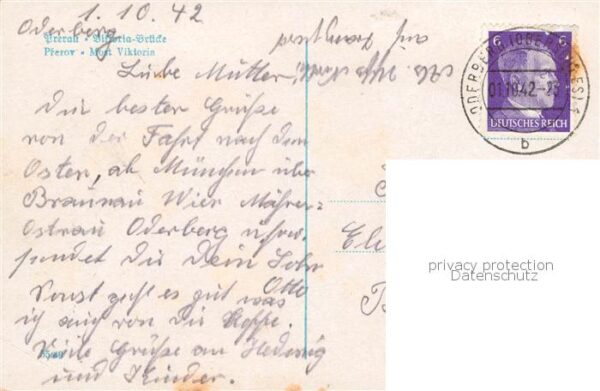 1. 10. 42
Oderberg
Prerau • Viktoria-Brücke
Přerov • Most Viktoria
Liebe Mutter,
Die besten Grüße
von der Fahrt nach dem
Osten, ab München über
Braunau Wien Mährer-
Ostrau Oderberg usw.
sendet dir Dein Sohn
Otto
Sonst geht es gut was
ich auch von dir hoffe.
Viele Grüße an Hedwig
und Kinder.
6
6
DEUTSCHES REICH
01.10.42
b
privacy protection
Datenschutz